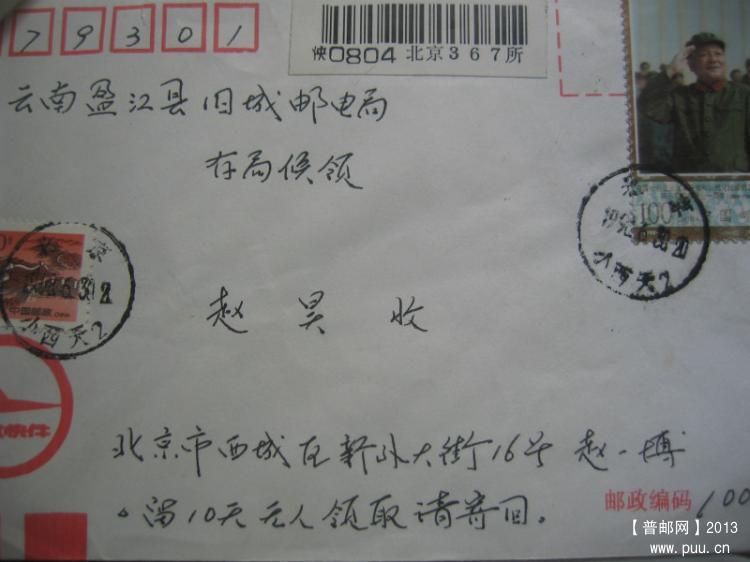 79301
快0804 北京367所
云南盈江县旧城邮电局
存局候领
100
赵 昊 收
快件
北京市西城区新外大街16号 赵一博
留10天无人领取请寄回。
邮政编码 100
【普邮网】2013
www.puu.cn